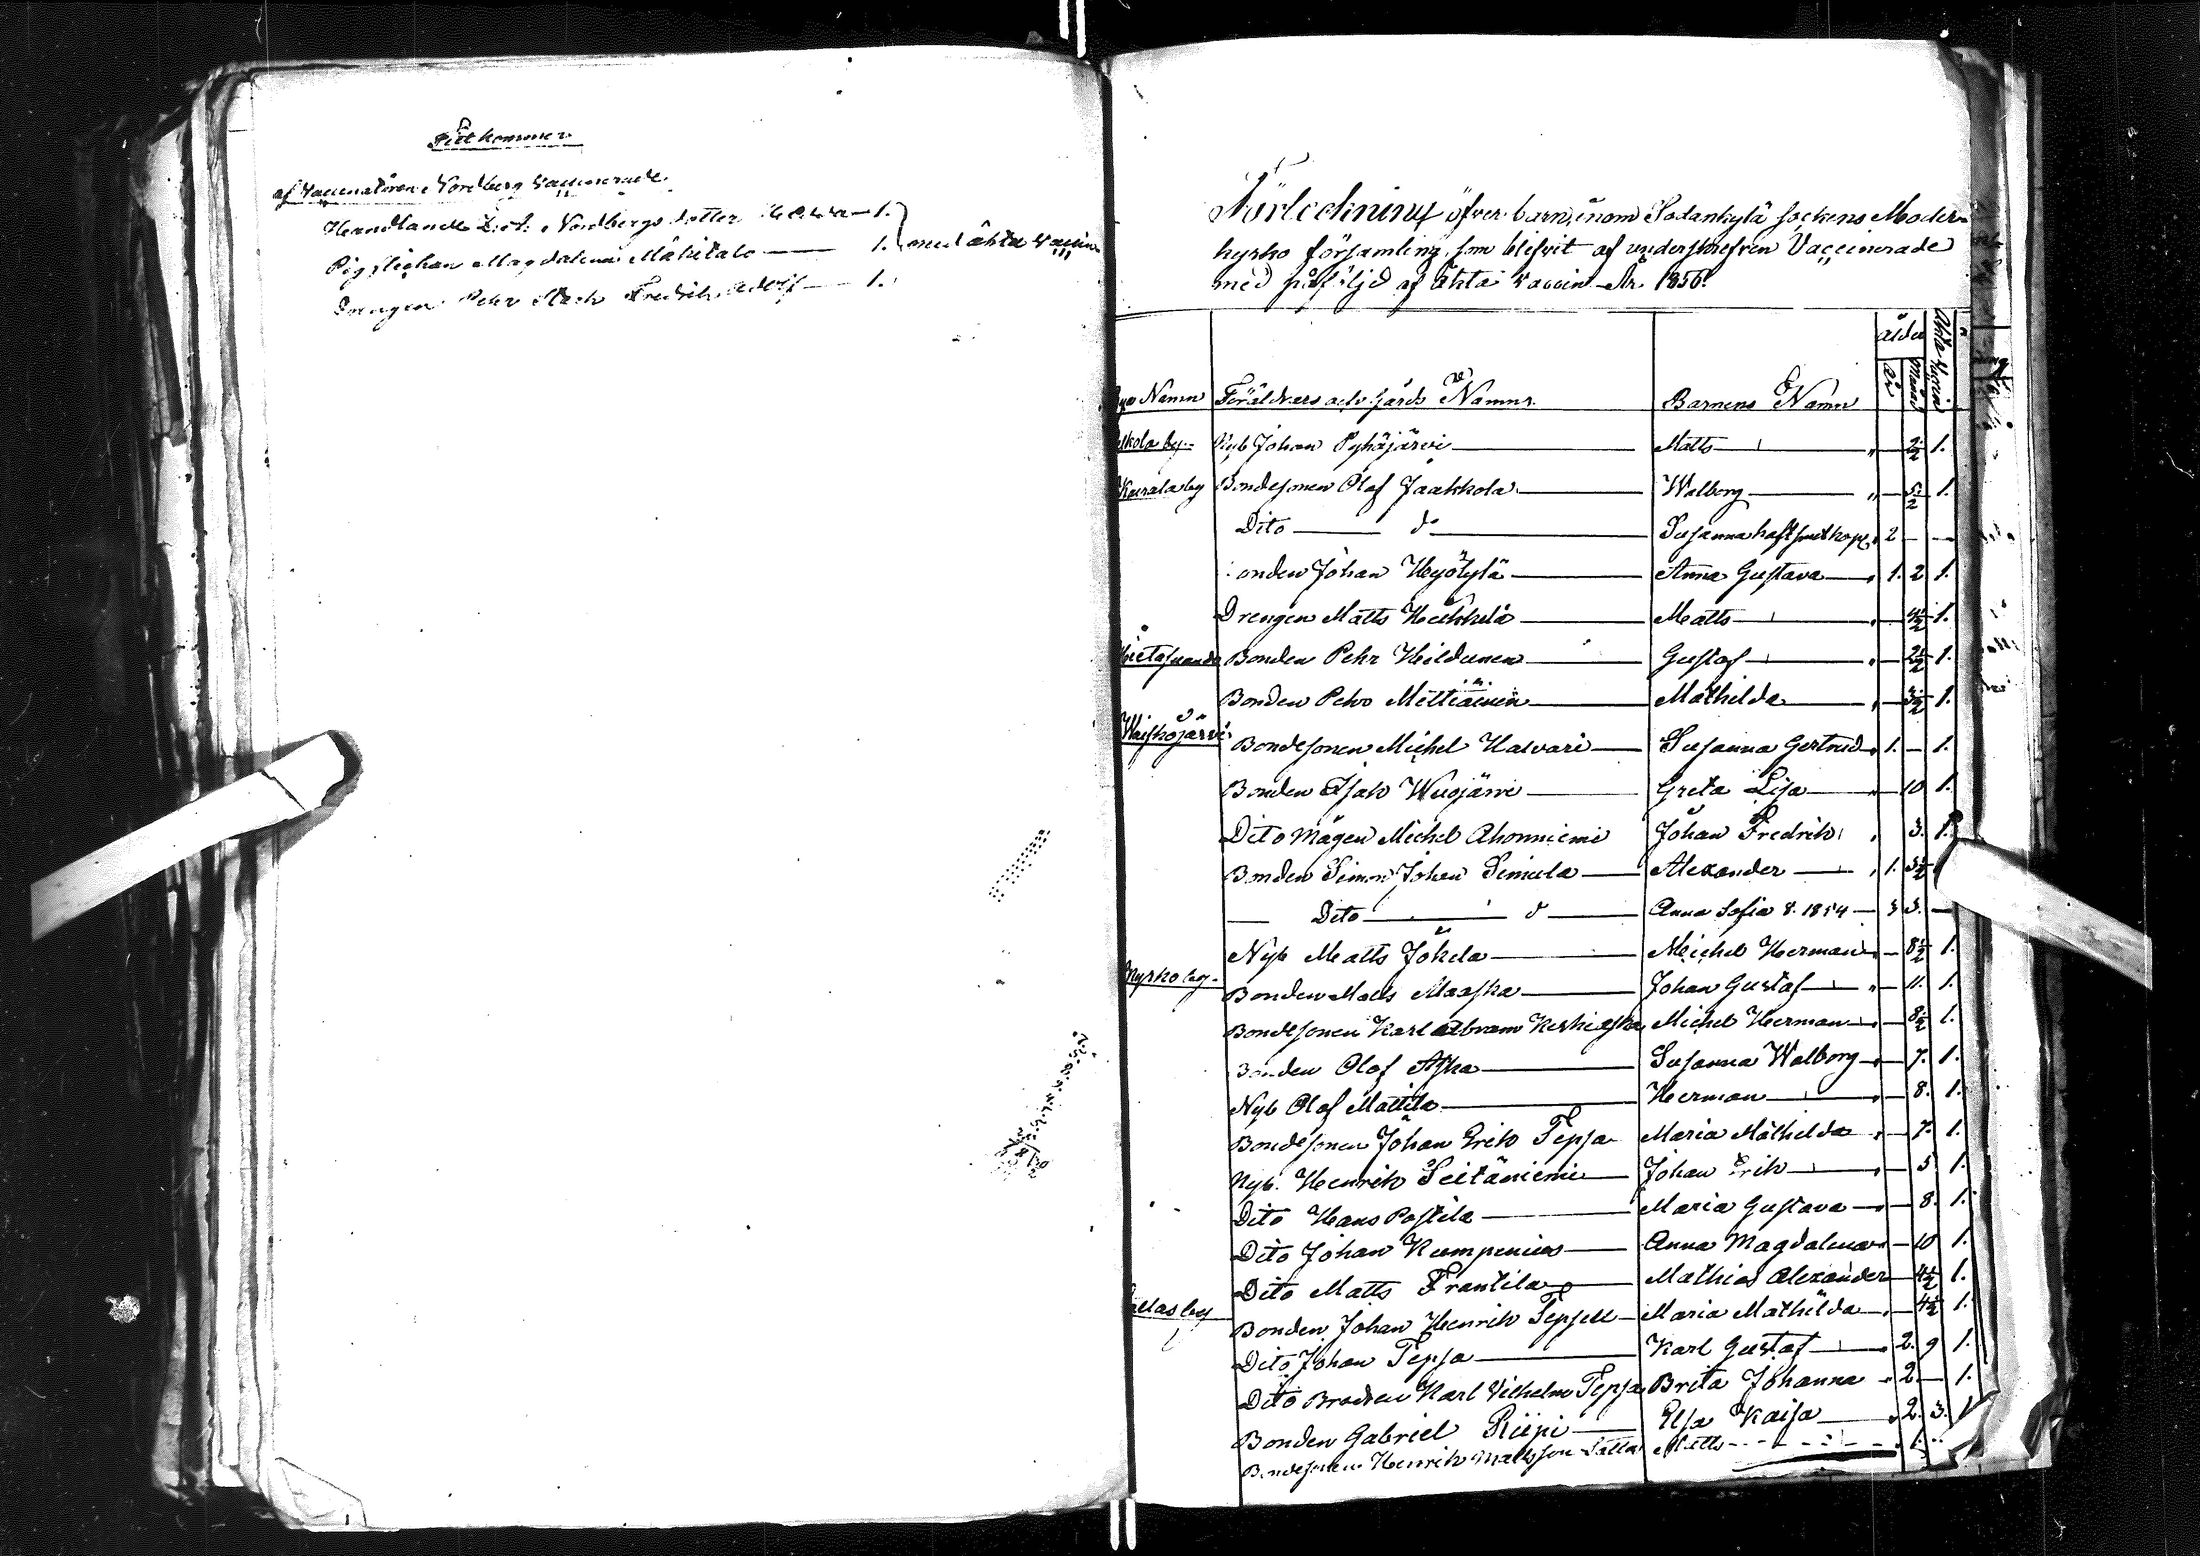 Tillkommer
af Vaccinatören Nordberg vaccinerade
Handlande Nordbergs dotter — 1.
Pig flickan Magdalena Mäkitalo — 1. med äkta vaccin
Drengen Pehr Fredrik Adolf — 1.
Förteckning öfver barn, inom Sodankylä sockens Moder-
kyrko församling, som blifvit af undershrefven Vaccinerade
med påfoljd af ähta vaccin År 1856.
Ålder
År Månad Ähta Vaccin
Namn Föräldrars och Gårds Namn Barnens Namn
by Nyb Johan Pyhäjärvi — Matts — " — 2½ 1.
Kairala by Bondesonen Olof Jaakkola — Walborg — " — 5½ 1.
Dito — do — Susanna haft 2 — —
Bonden Johan Heyötylä — Anna Gustava — 1. 2 1.
Drengen Matts Heikkilä — Matts — " — 4½ 1.
Hietasuando Bonden Pehr Hilduinen — Gustaf — " — 2½ 1.
Bonden Mettiäinen — Mathilda — " — 3½ 1.
Waiskojärvi
Bondesonen Michel Halvari — Susanna Gertrud 1. — 1.
Bonden Isak Wuojärvi — Greta Lisa — " — 10 1.
Dito Mågen Michel Ahonniemi Johan Fredrik " 3. 1.
Bonden Simon Johan Simula — Alexander — " 1. 3½
— Dito — d — Anna Sofia 1854 — 3 3. —
Nyb Matts Jokela — Michel Herman — 8½ 1.
Kyrko by Bonden Mats Maaska — Johan Gustaf — " — 11. 1.
Bondesonen Karl Abram Michel Herman — 8½ 1.
Bonden Olof Aska — Susanna Walborg — 7. 1.
Nyb Olof Mattila — Herman — " — 8. 1.
Bondesonen Johan Erik Tepsa Maria Mathilda " — 7. 1.
Nyb. Henrik Seitäniemi — Johan Erik — " — 5 1.
Dito Hans Postila — Maria Gustava — 8. 1.
Dito Johan Kumpenius — Anna Magdalena — 10 1.
Dito Matts Frantila — Mathias Alexander — 4½ 1.
by Bonden Johan Henrik Tepsell — Maria Mathilda — 4½ 1.
Dito Johan Tepsa — Karl Gustaf — 2. 9 1.
Dito Brodren Karl Vilhelm Tepsa Brita Johanna " 2 — 1.
Bonden Gabriel Riipi — Elsa Kaisa — 2. 3. 1
Bondesonen Henrik Mattsson Matts - - - 1.